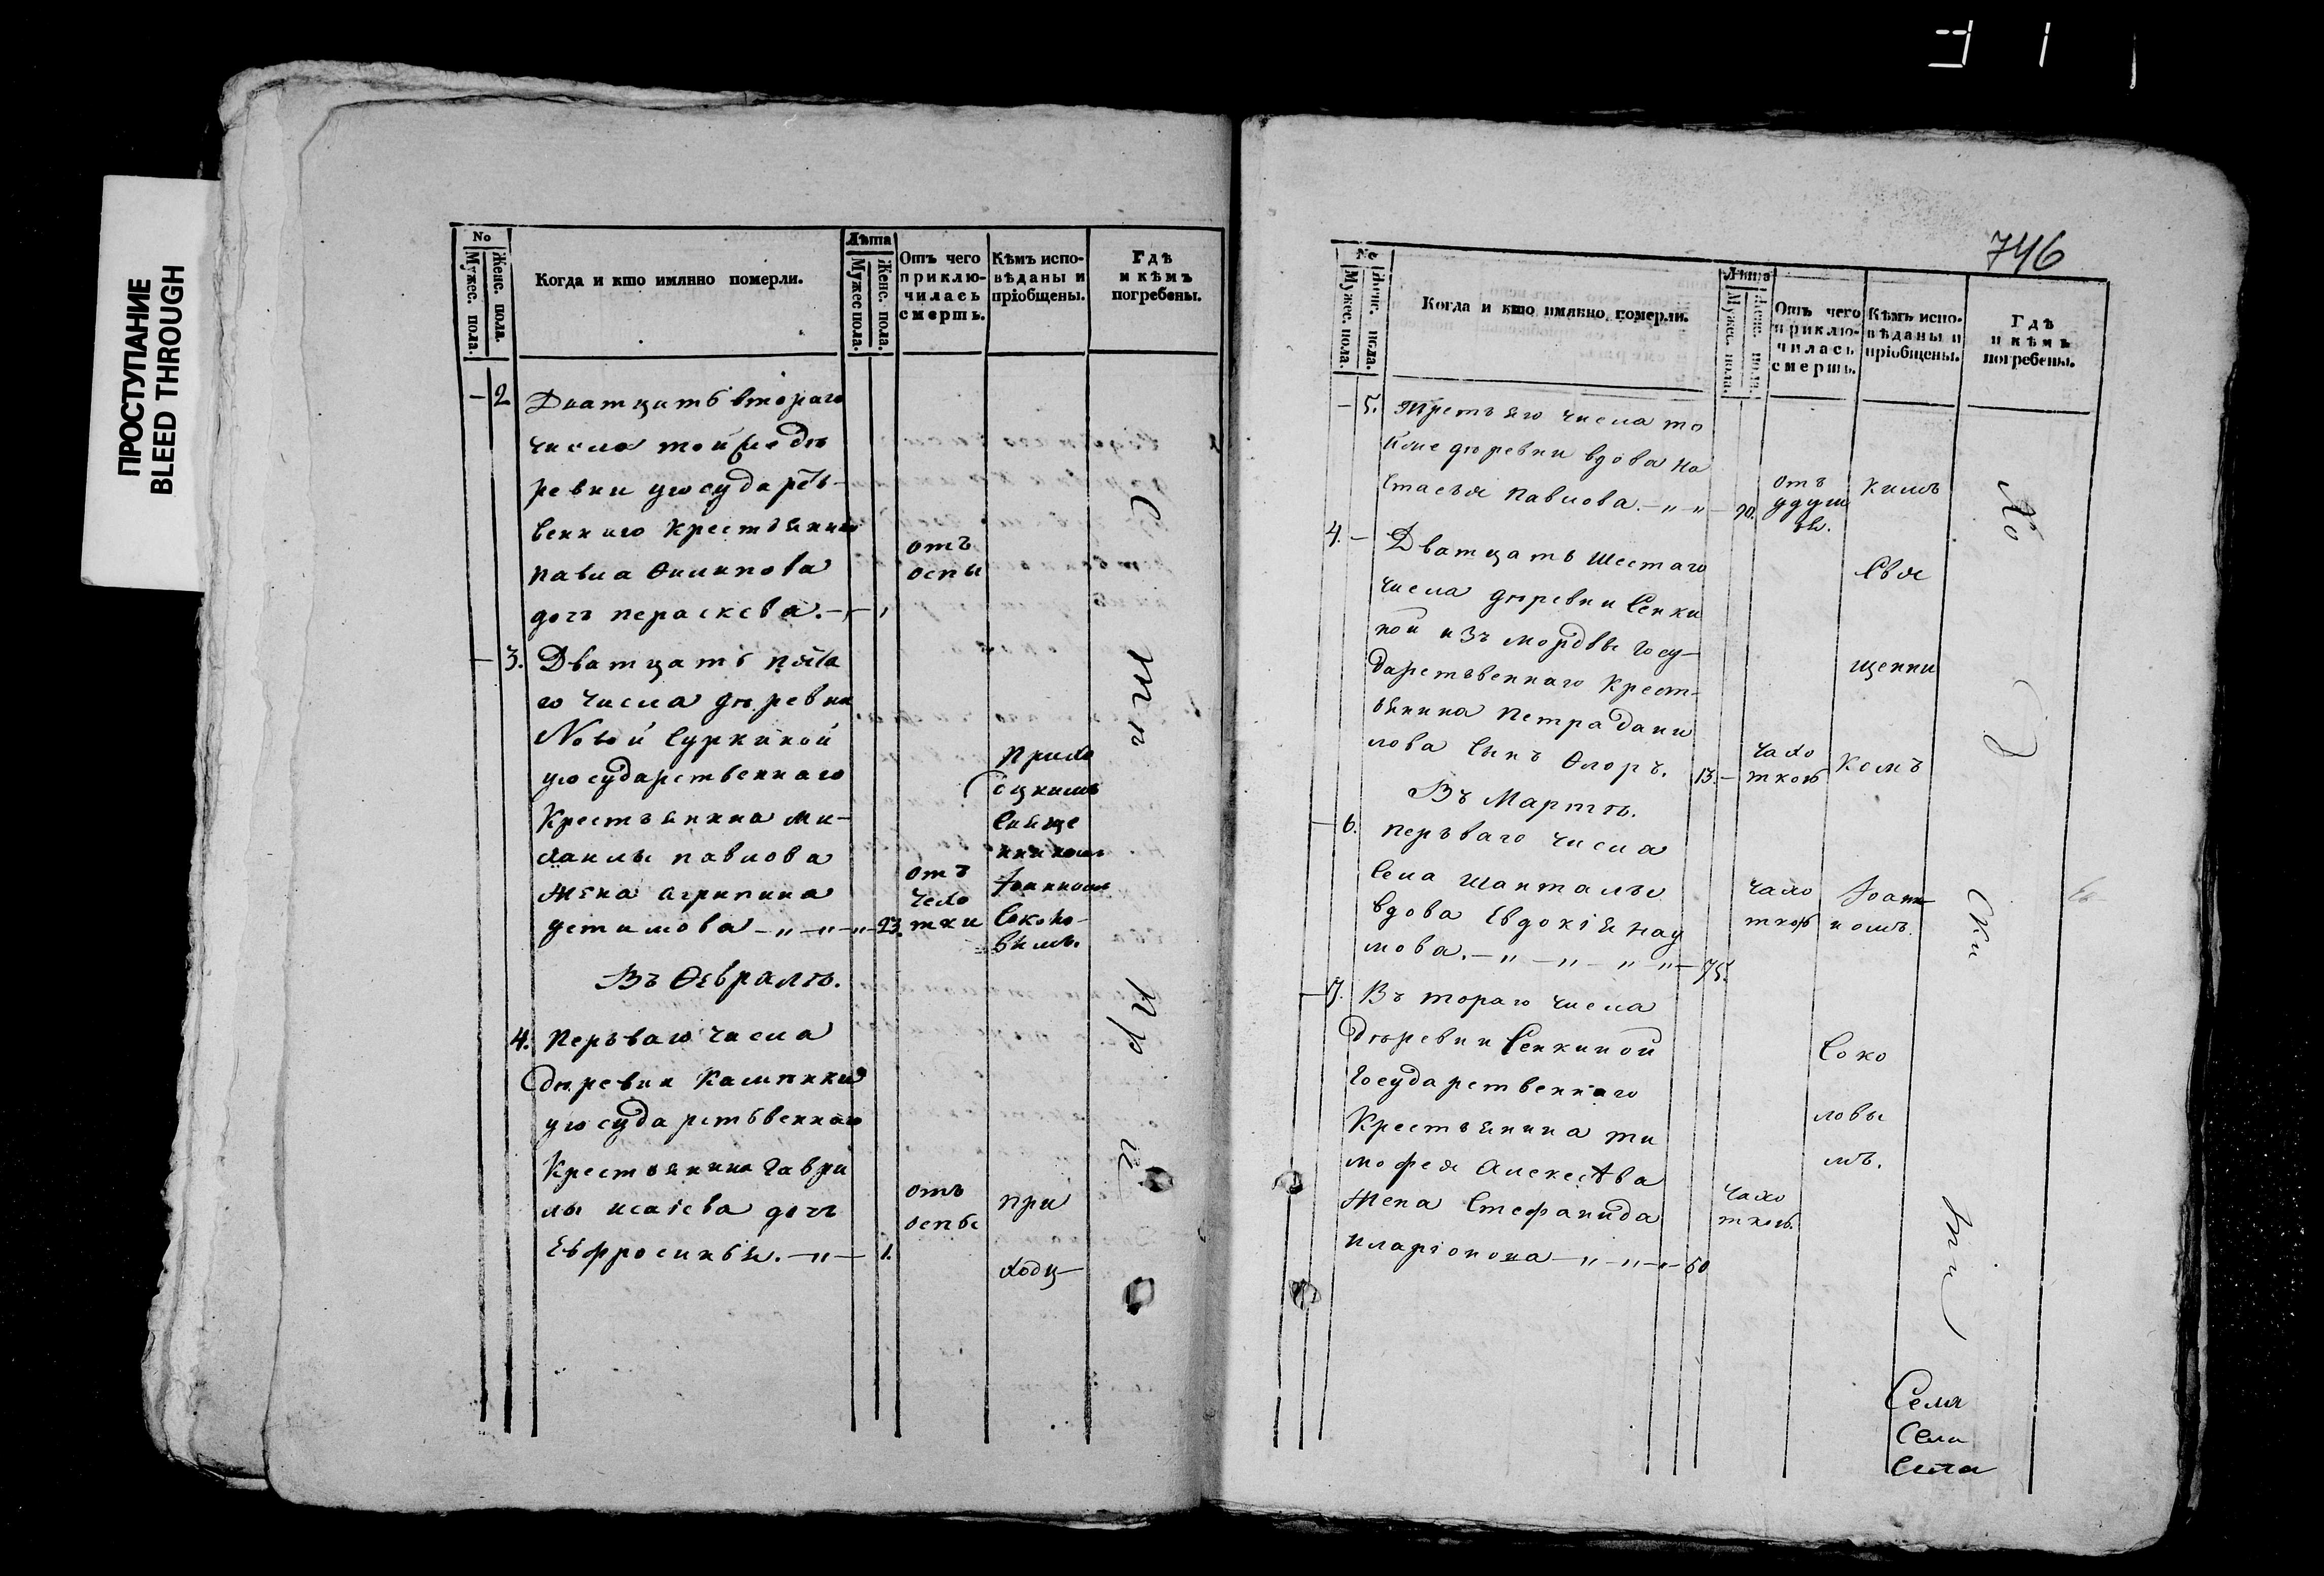 ПРОСТУПАНИЕ
BLEED THROUGH
No
Мужес. пола.
Женс. пола.
Когда и кто имянно померли.
Лѣта
Мужес пола.
Женс. пола.
Отъ чего
приклю-
чилась
смерть.
Кѣмъ испо-
вѣданы и
пріобщены.
Гдѣ
и кѣмъ
погребены.
— 2
Дватцать втораго
числа той же дѣ
ревни
веннаго крестьянина
павла Филипова
дочь пераскева. — 1
отъ
оспы
— 3.
Дватцать пята
го числа дѣревни
Новой Суркиной
государственнаго
Крестьянина ми-
хаилы павлова
жена агрипина
устимова — „ — „ — „ — 23.
отъ
чехо
тки
прихо
Свяще
нникомъ
Іоанномъ
Соколо-
вымъ.
Въ Февралѣ.
4.
Перьваго числа
дѣревни Калинкы
государствѣннаго
Крестьянина Гаври
лы исаіева дочь
Евфросинья. — „ — 1.
отъ
оспы
при
ходц—
на
при
746
No
Мужес. пола.
Женс. пола.
Когда и кто имянно померли.
Лѣта
Мужес. пола.
Женс. пола.
Отъ чего
приклю-
чилась
смерть.
Кѣмъ испо-
вѣданы и
пріобщены.
Гдѣ
и кѣмъ
погребены.
— 5.
Третьяго числа то
йже дѣревни вдова на
стасья павлова. — „ „ — 90.
отъ
удуш
ья.
кимъ
4. —
Дватцать шестаго
числа дѣревни Сенки
ной изъ мордвы госу-
дарственнаго крест-
ьянина петра дани
лова сынъ Флоръ. 13. —
чахо
ткой
Свя
щенни
комъ
Въ Мартѣ.
— 6.
перьваго числа
села Шанталы
вдова Евдокія нау
мова. — „ — „ — „ — „ — 75.
чахо
ткой
Іоанн
номъ.
— 7.
Втораго числа
дѣревни Сенкиной
Государственнаго
Крестьянина ти
мофея алексѣева
жена Стефанида
иларіонова — „ — „ — „ — 60
чахо
ткой
Соко
ловы
мъ.
хо
д
ски